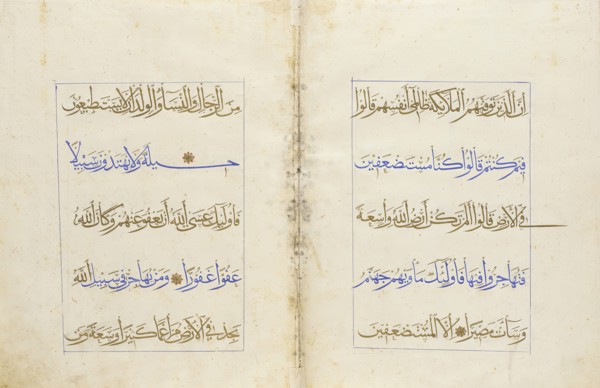 ان الذين توفيهم الملائكة ظالمي انفسهم قالوا
فيم كنتم قالوا كنا مستضعفين
في الارض قالوا الم تكن ارض الله واسعة
فتهاجروا فيها فاولئك ماويهم جهنم
وساءت مصيرا الا المستضعفين
من الرجال والنساء والولدان لا يستطيعون
حيلة ولا يهتدون سبيلا
فاولئك عسى الله ان يعفو عنهم وكان الله
عفوا غفورا ومن يهاجر في سبيل الله
يجد في الارض مراغما كثيرا وسعة ومن